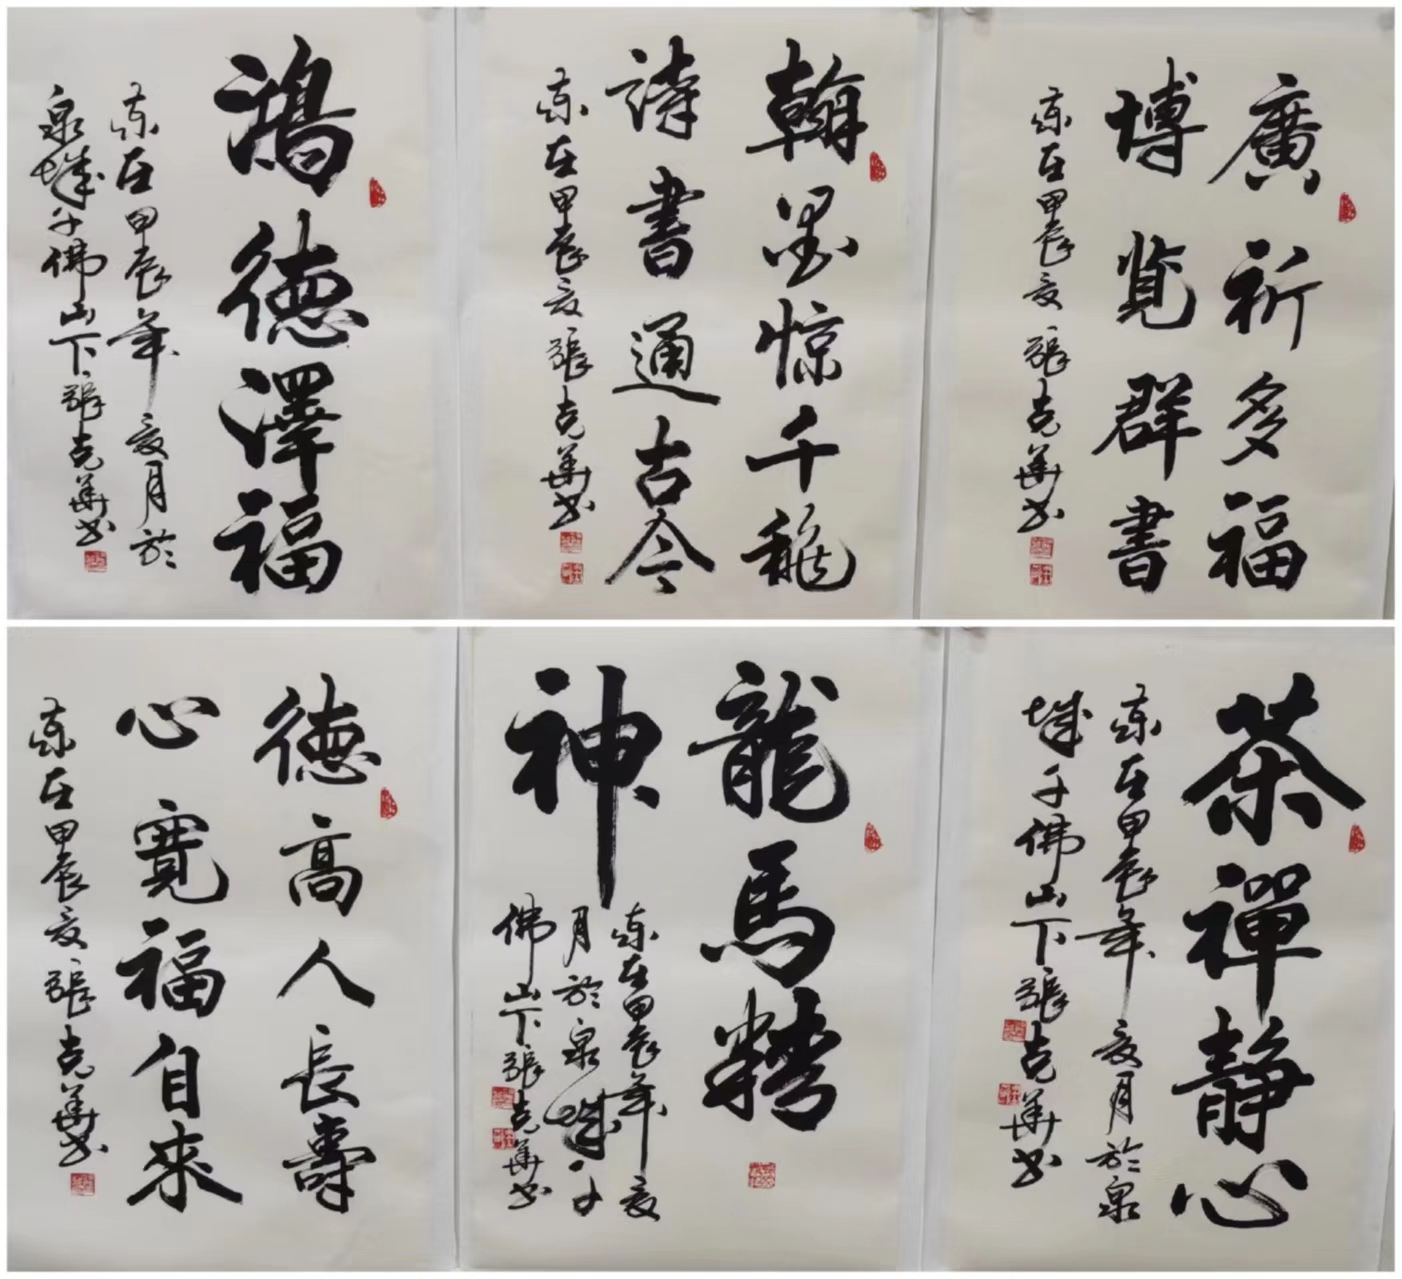 鴻德澤福
歲在甲辰年夏月於
泉城千佛山下張克華书
翰墨惊千穐
詩書通古今
歲在甲辰夏張克華书
廣祈多福
博览群書
歲在甲辰夏張克華书
德高人長壽
心寬福自來
歲在甲辰夏張克華书
龍馬精
神
歲在甲辰年夏
月於泉城千
佛山下張克華书
茶禪静心
歲在甲辰年夏月於泉
城千佛山下張克華书